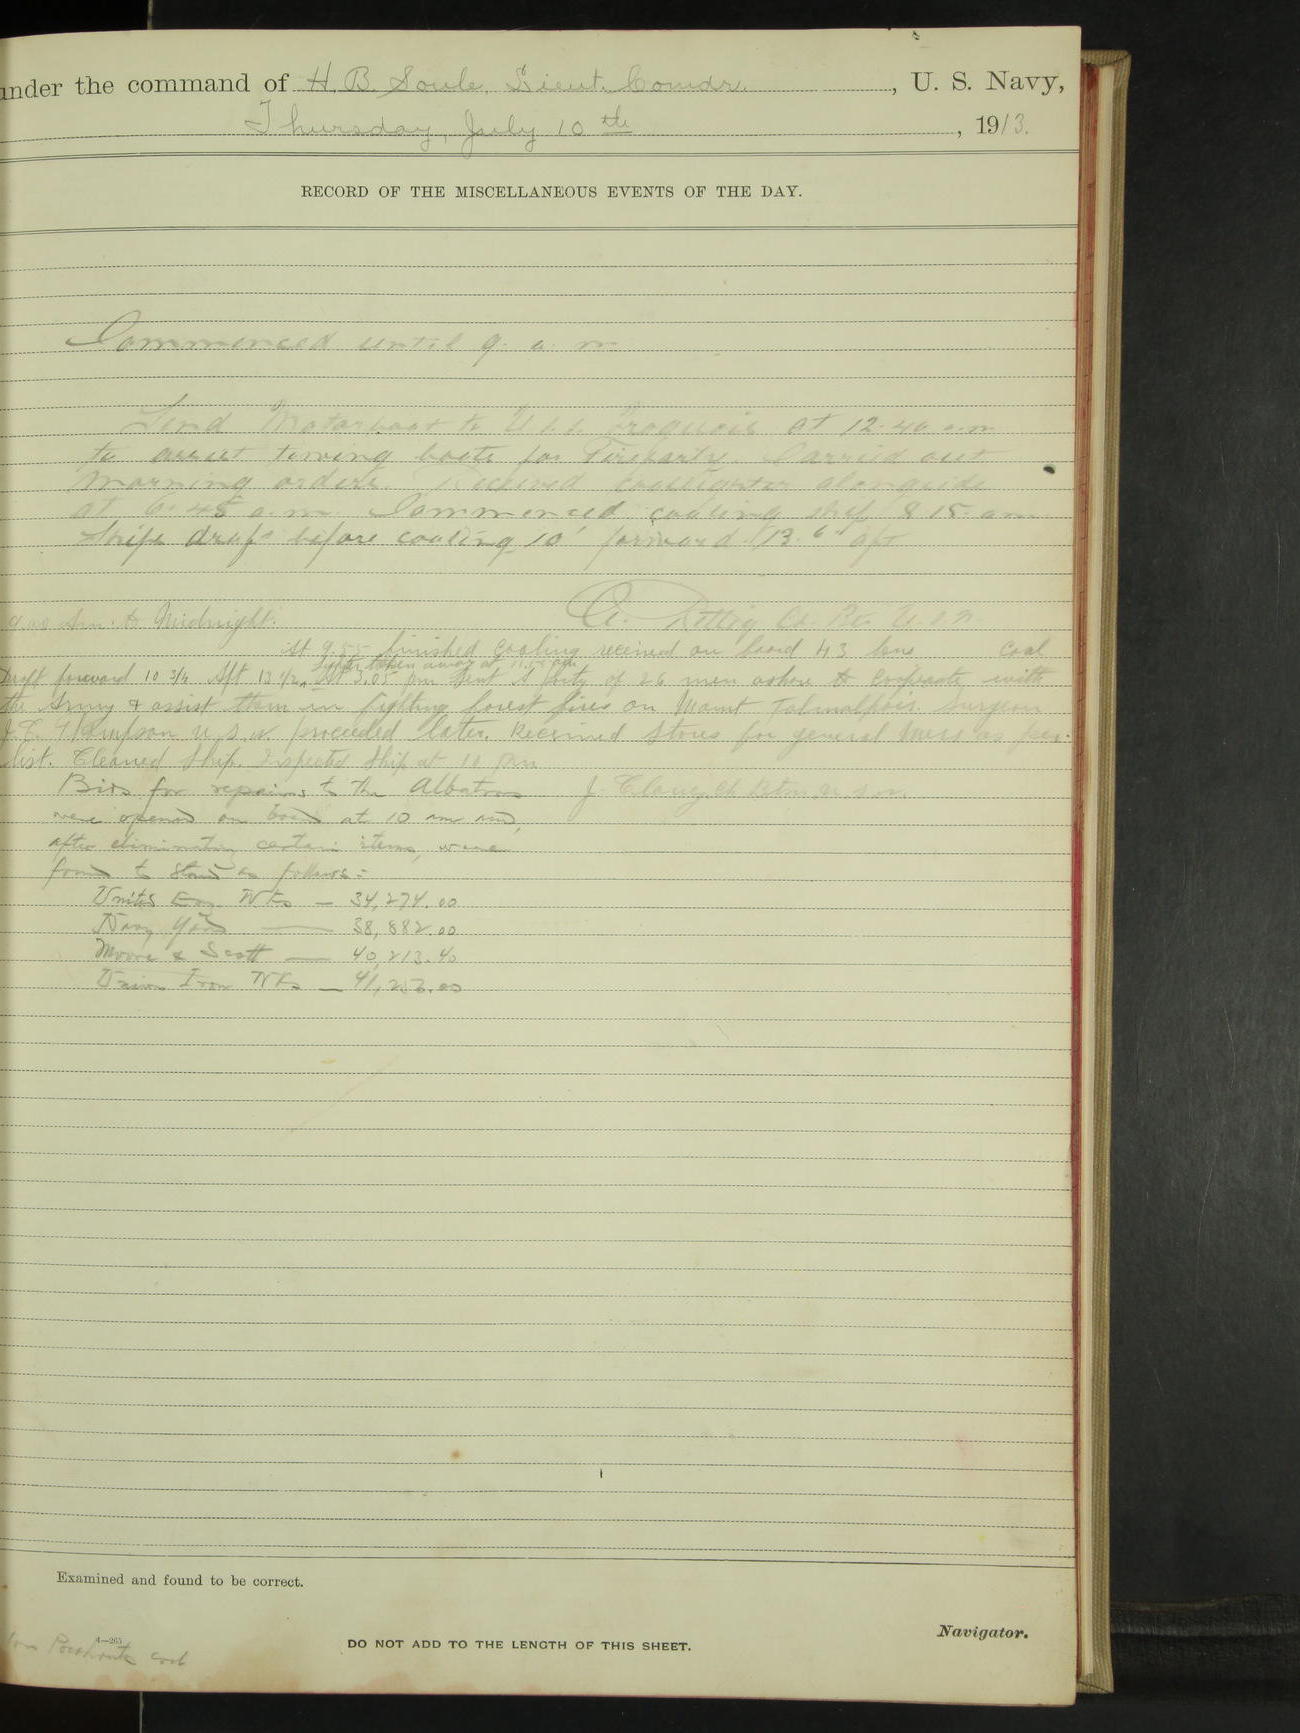 under the command of H. B. Soule, Lieut. Comdr. , U. S. Navy,
Thursday, July 10th , 1913.
RECORD OF THE MISCELLANEOUS EVENTS OF THE DAY.
Commenced until 9. a. m
Send Motorboat to U.S.S. Iroquois at 12.40 a.m
to assist towing boats for Fireparty. Carried out
Morning orders. Received coallighter alongside
at 6.45 a.m. Commenced coaling ship 8 15 a.m
Ships draft before coaling 10' forward 13' 6" aft
A. Rettig Ch. Bo. U.S.N.
Am. to Midnight.
At 9.55 finished Coaling received on board 43 tons coal
Lighter taken away at
Draft forward 10 3/4 Aft 13 1/2. At 3.05 pm Sent a party of 26 men ashore to Cooperate with
the Army & assist them in fighting forest fires on Mount Talmalpias. Surgeon
J. C. Thompson U.S.N. proceeded later. Received Stores for general Mess as per
list. Cleaned Ship. Inspected Ship at 10 pm
Bids for repairs to the Albatross
J. Clancy Ch Btsn U.S.N.
were opened on board at 10 am and,
after eliminating certain items, were
found to stand as follows:-
United Eng. Wks — 34,274.00
Navy Yard — 38,882.00
Moore & Scott — 40,213.40
Union Iron Wks — 41,253.00
Examined and found to be correct.
Navigator.
4—265
DO NOT ADD TO THE LENGTH OF THIS SHEET.
tons Pocahontas coal